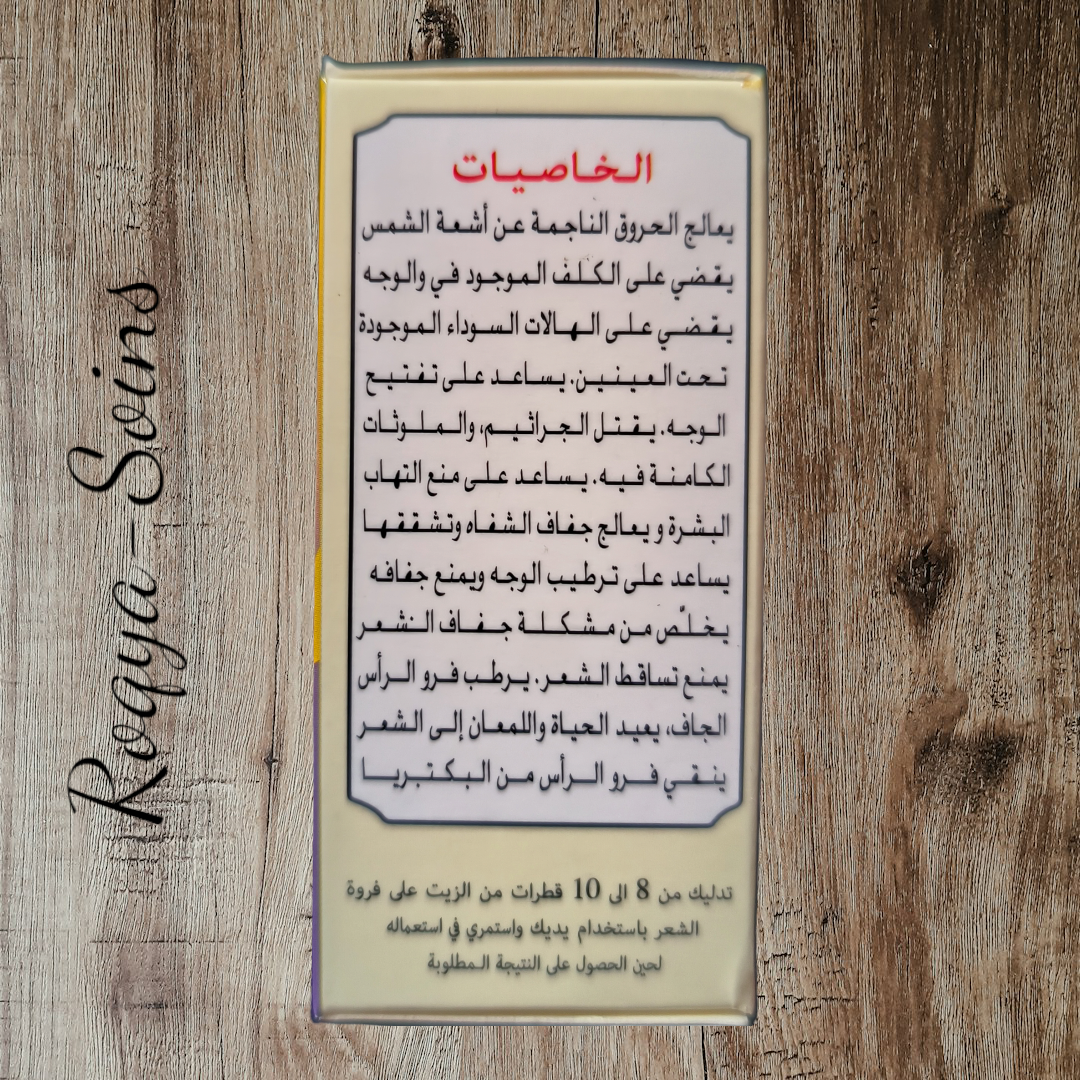 الخاصيات
يعالج الحروق الناجمة عن أشعة الشمس
يقضي على الكلف الموجود في والوجه
يقضي على الهالات السوداء الموجودة
تحت العينين. يساعد على تفتيح
الوجه. يقتل الجراثيم، والملوثات
الكامنة فيه. يساعد على منع التهاب
البشرة و يعالج جفاف الشفاه وتشققها
يساعد على ترطيب الوجه ويمنع جفافه
يخلّص من مشكلة جفاف النشعر
يمنع تساقط الشعر. يرطب فرو الرأس
الجاف، يعيد الحياة واللمعان إلى الشعر
ينقي فرو الرأس من البكتريا
تدليك من 8 الى 10 قطرات من الزيت على فروة
الشعر باستخدام يديك واستمري في استعماله
لحين الحصول على النتيجة المطلوبة
Roqya-Soins